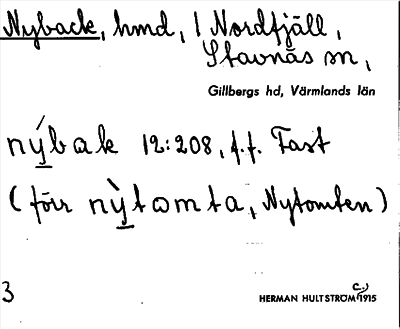 Nyback, hmd, 1 Nordfjäll,
Stavnäs sn,
Gillbergs hd, Värmlands län
ný̱bak 12:208, f.f. Fast
(förr nỳ̱tωmta, Nytomten)
3
HERMAN HULTSTRÖM c.) 1915